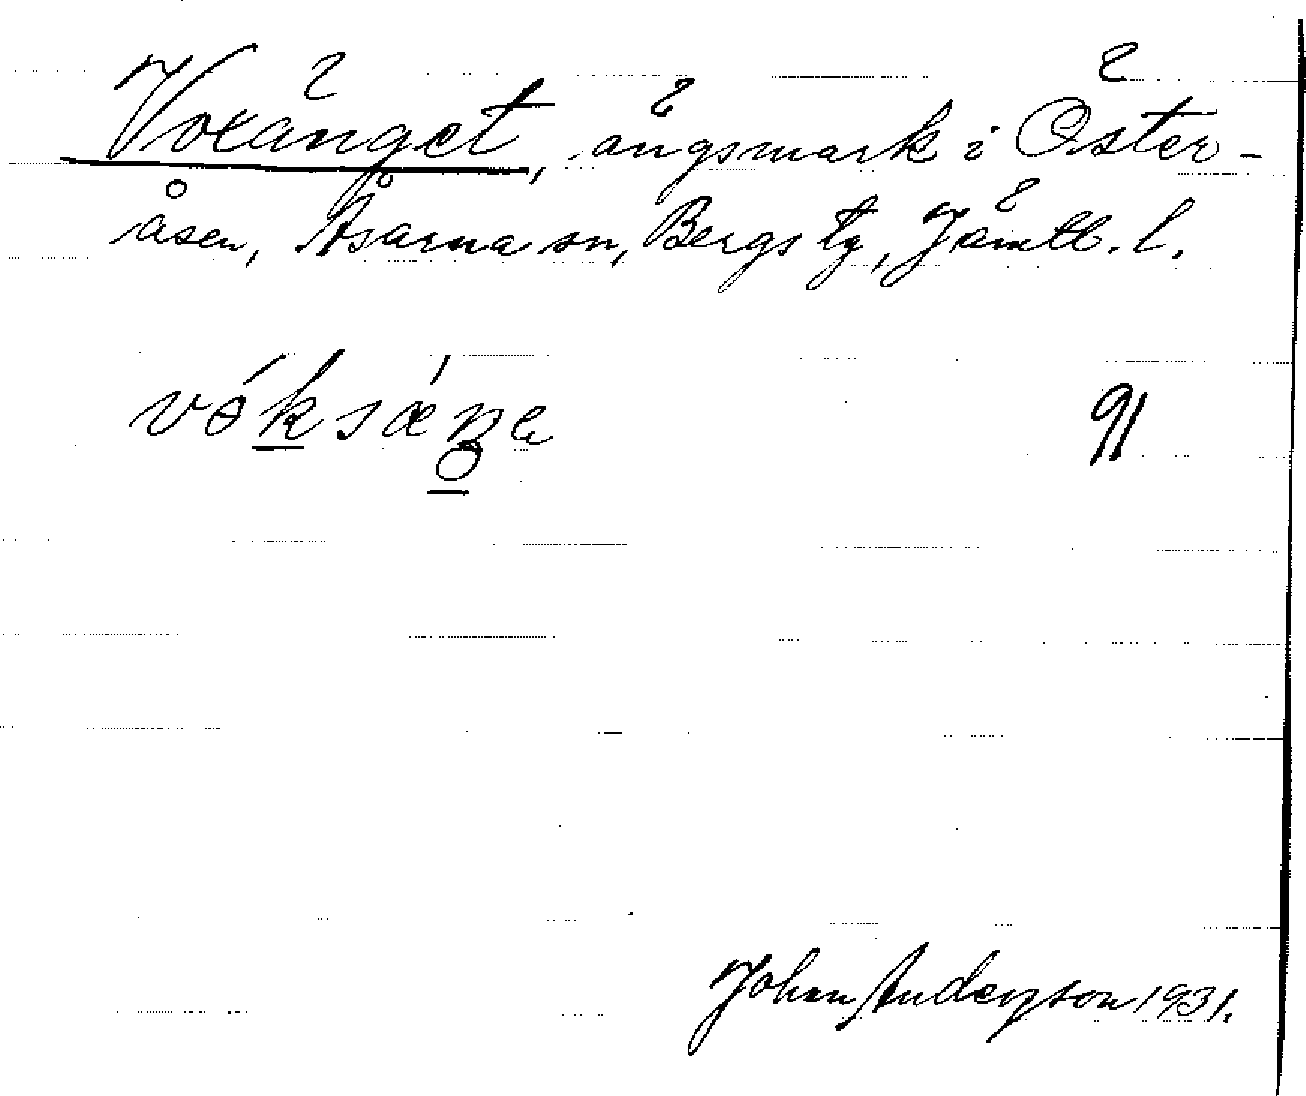 Voxänget, ängsmark i Öster-
åsen, Åsarna sn, Bergs tg, Jämtl. l.
91
Johan Anderson 1931.